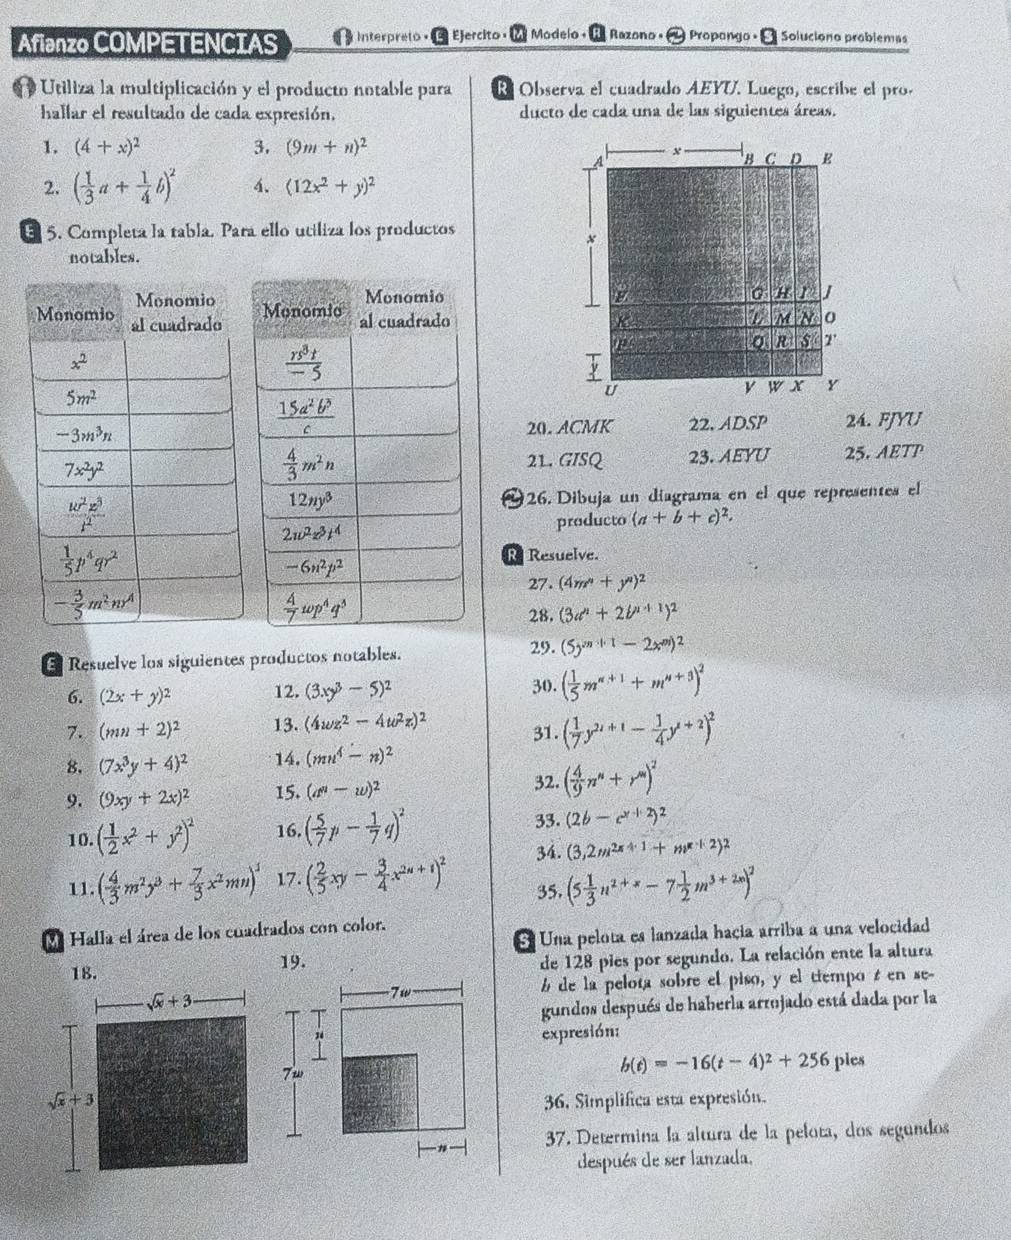 Afianzo COMPETENCIAS
I Interpreto • E Ejercito • M Modelo • R Razono • P Propongo • S Soluciono problemas
I Utiliza la multiplicación y el producto notable para
hallar el resultado de cada expresión.
1. (4 + x)²
3. (9m + n)²
2. (1/3 a + 1/4 b)²
4. (12x² + y)²
E 5. Completa la tabla. Para ello utiliza los productos
notables.
Monomio | Monomio al cuadrado
x²
5m²
−3m³n
7x²y²
w²z³/t²
1/5 p⁴qr²
−3/5 m²nr⁴
Monomio | Monomio al cuadrado
rs³t/−5
15a²b³/c
4/3 m²n
12ny³
2w²z³t⁴
−6n²p²
4/7 wp⁴q³
E Resuelve los siguientes productos notables.
6. (2x + y)²
12. (3xy³ − 5)²
7. (mn + 2)²
13. (4wz² − 4w²z)²
8. (7x³y + 4)²
14. (mn⁴ − n)²
9. (9xy + 2x)²
15. (aⁿ − w)²
10. (1/2 x² + y²)²
16. (5/7 p − 1/7 q)²
11. (4/3 m²y³ + 7/3 x²mn)
17. (2/5 xy − 3/4 x²ⁿ⁺¹)²
M Halla el área de los cuadrados con color.
18.
19.
√x + 3
√x + 3
7w
n
7w
n
R Observa el cuadrado AEYU. Luego, escribe el pro-
ducto de cada una de las siguientes áreas.
x
A B C D E
x
F G H I J
K L M N O
P Q R S T
y
U V W X Y
20. ACMK
22. ADSP
24. FJYU
21. GISQ
23. AEYU
25. AETP
P 26. Dibuja un diagrama en el que representes el
producto (a + b + c)².
R Resuelve.
27. (4mⁿ + yⁿ)²
28. (3aⁿ + 2bⁿ⁺¹)²
29. (5yᵐ⁺¹ − 2xᵐ)²
30. (1/5 mⁿ⁺¹ + mⁿ⁺³)²
31.
32. (4/9 nⁿ + rᵐ)²
33. (2b − cˣ⁺²)²
34. (3,2m²ˣ⁺¹ + mˣ⁺²)²
35. (5 1/3 n²⁺ˣ − 7 1/2 m³⁺²ⁿ)²
S Una pelota es lanzada hacia arriba a una velocidad
de 128 pies por segundo. La relación ente la altura
h de la pelota sobre el piso, y el tiempo t en se-
gundos después de haberla arrojado está dada por la
expresión:
h(t) = −16(t − 4)² + 256 pies
36. Simplifica esta expresión.
37. Determina la altura de la pelota, dos segundos
después de ser lanzada.